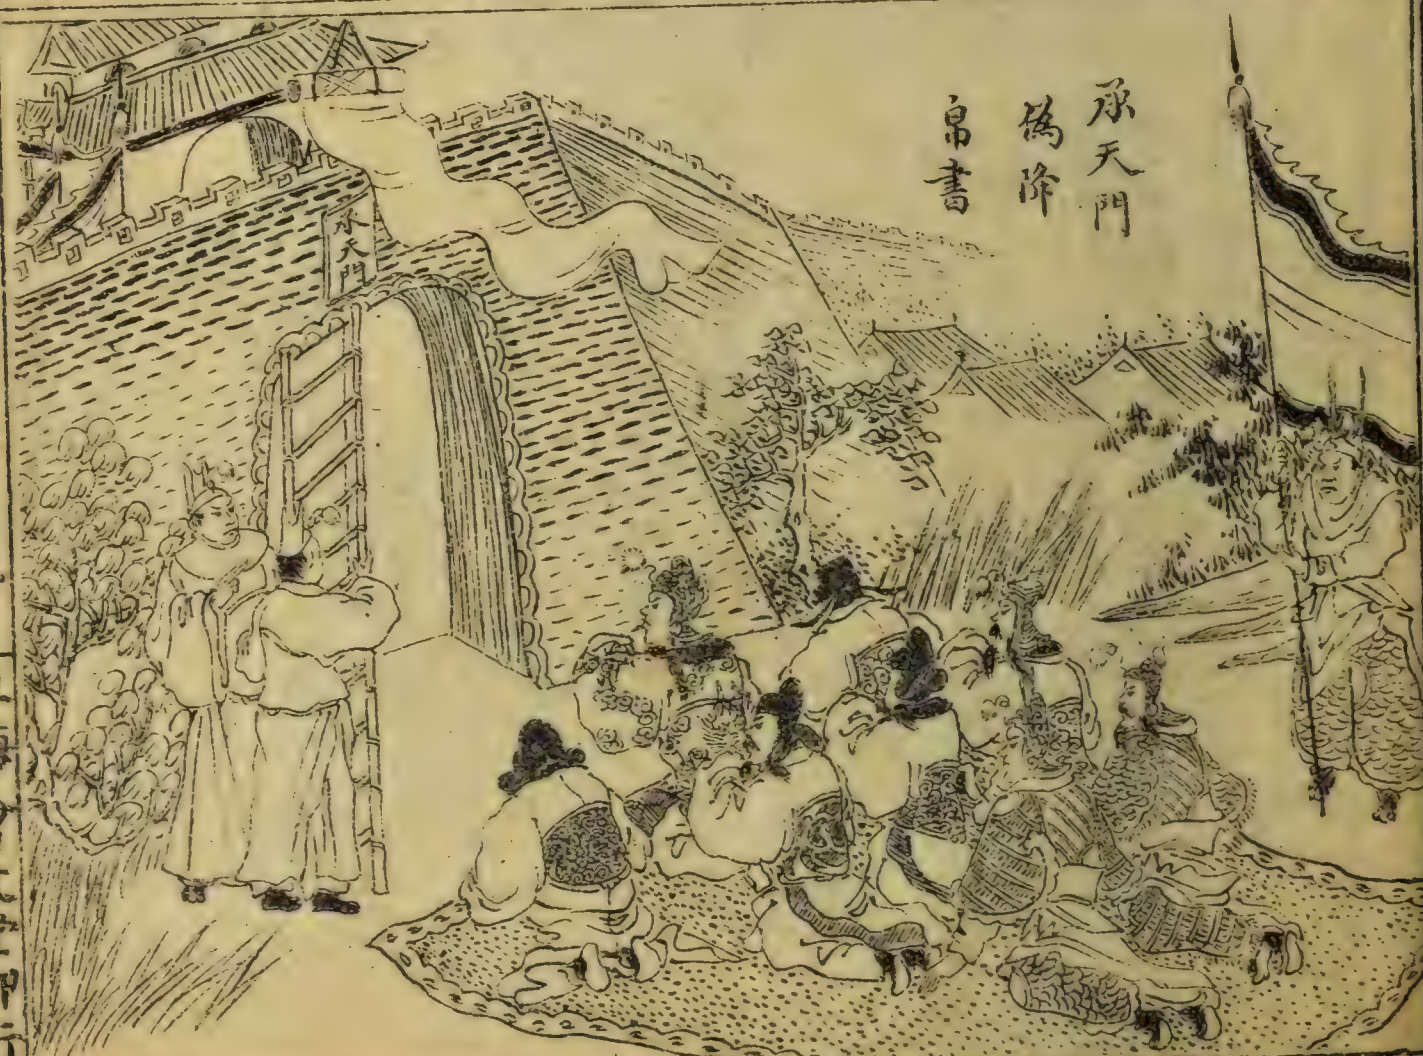 承天門
偽降
帛書
承天門